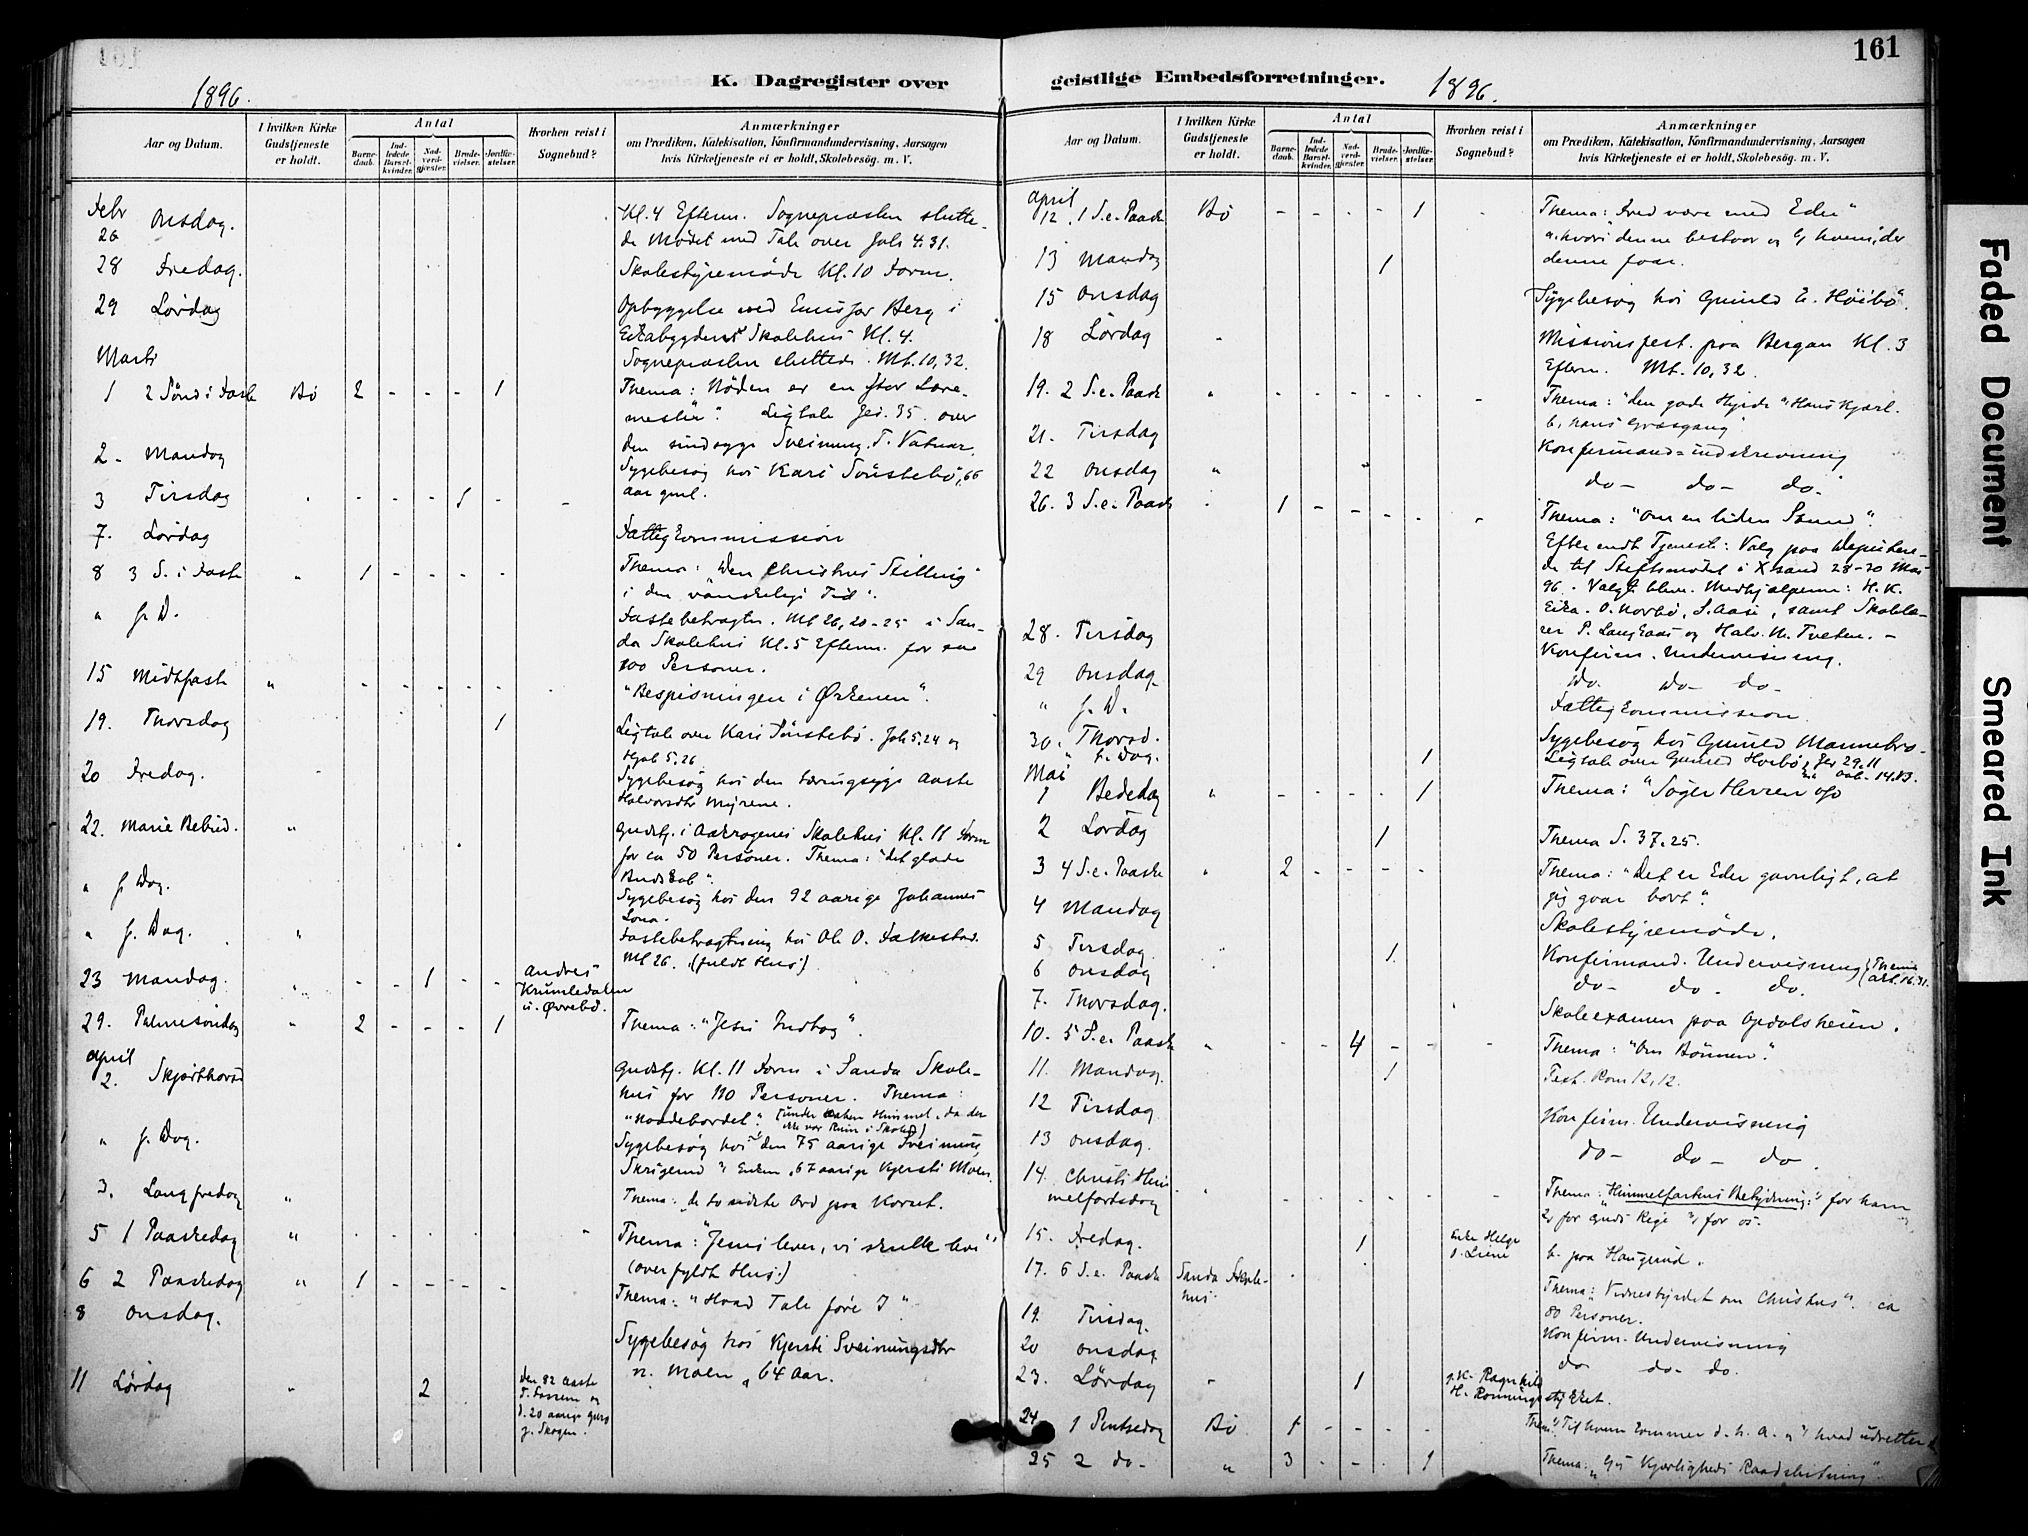 161
1896.
K. Dagregister over
Aar og Datum.
I hvilken Kirke Gudstjeneste er holdt.
Antal
Barnedaab.
Indledede Barselkvinder.
Nadverdgjester.
Brudevielser.
Jordfæstelser.
Hvorhen reist i Sognebud?
Anmærkninger
om Prædiken, Katekisation, Konfirmandundervisning, Aarsagen
hvis Kirketjeneste ei er holdt, Skolebesög. m. V.
Febr
26 Onsdag. Kl. 4 Efterm. Sognepræsten slutte-
de Mødet med Tale over Joh 4.31.
28 Fredag. Skolestyremøde Kl. 10 Form.
29 Lørdag Opbyggelse ved Berg i
Skolehus Kl. 4.
Sognepræsten sluttede. Mt. 10,32.
Marts
1 2 Sønd i Faste Bø 2 - - - 1 Thema: Nøden er en stor Lære-
mester". Ligtale Jer. 35. over
den sindsyge Sveinung T. Vatnar.
2 - Mandag Sygebesøg hos Kari Sønstebø, 66
aar gml.
3 Tirsdag - - - 1 - -
7. Lørdag Fattigkommission
8 3 S. i Faste " 1 - - - - Thema: "Den Christnes Stilling
i den vanskelige Tid".
" s. D. Fastebetragtn. Mt 26, 20-25 i San-
da Skolehus Kl. 5 Efterm. for
100 Personer.
15 Midtfaste " - - - - - "Bespisningen i Ørkenen".
19. Thorsdag 1 Ligtale over Kari Sønstebø. Joh 5,24 og
Hjob 5,26
20 Fredag. Sygebesøg hos den tæringssyge Aaste
Halvorsdtr Myrene.
22. Marie Bebud. " Gudstj. i Skolehus Kl. 11 Form
for ca 50 Personer. Thema: "det glade
Budskab".
" s. Dag. Sygebesøg hos den 92 aarige Johannes
Lona.
" s. Dag. " Fastebetragtning hos Ole O. Folkestad.
Mt 26. (fuldt Hus)
23 Mandag. " - - 1 - - Andres
Krumledalen
u. Øvrebø.
29. Palmesøndag " 2 - - - 1 Thema: "Jesu Indtog".
April
2. Skjærthorsd Gudstj. Kl. 11 Form i Sanda Skole-
hus for 110 Personer. Thema:
"Naadebordet". (under aaben Himmel, da der
ikke var Rum i Skolen)
" s. Dag. Sygebesøg hos den 75 aarige Sveinung
Enken, 67 aarige Kjersti Moen.
3. Langfredag " Thema: de to sidste Ord paa Korset.
5 1 Paaskedag " - - - - - Thema: "Jesus lever, vi skulle leve"
(overfyldt Hus.)
6 2 Paaskedag " 1 - - - - Thema: "Hvad Tale føre I".
8 Onsdag. Sygebesøg hos Kjersti Sveinungsdtr
n. Moen, 64 Aar.
11 Lørdag " 2 den 82 aarige
T. og
d. 20 aarige Guro
J. Skogen.
161
geistlige Embedsforretninger.
1896.
Aar og Datum.
I hvilken Kirke Gudstjeneste er holdt.
Antal
Barnedaab.
Indledede Barselkvinder.
Nadverdgjester.
Brudevielser.
Jordfæstelser.
Hvorhen reist i Sognebud?
Anmærkninger
om Prædiken, Katekisation, Konfirmandundervisning, Aarsagen
hvis Kirketjeneste ei er holdt, Skolebesög. m. V.
April
12. 1 S. e. Paaske Bø - - - - 1 - Thema: Fred være med Eder"
a, hvori denne bestaar og b, hvem, der
denne faar.
13 Mandag 1
15 Onsdag Sygebesøg hos Gunild E. Høibø.
18 Lørdag Missionsfest paa Bergan Kl. 3
Efterm. Mt. 10,32.
19. 2 S. e. Paaske " - - - - - - Thema: "den gode Hyrde a, Hans Kjærl.
b, hans Græsgang
21. Tirsdag Konfirmand=indskrivning
22 Onsdag " do - do - do -
26. 3 S. e. Paaske " 1 - - - - - Thema: "Om en liden Stund".
Efter endt Tjeneste: Valg paa Deputere-
de til Stiftsmødet i Xsand 28-30 Mai
96. Valgt blev Medhjælperne: H. K.
Eika. O. Norbø, S. Aase, samt Skolelæ-
rer P. Langaas og Halv. N. Tveten. -
28. Tirsdag Konfirm. Undervisning.
29 Onsdag Do. do - do -
" s. D. Fattigkommission.
30. Thorsd. Sygebesøg hos Gunild Mannebro-
" s. Dag. 1 Ligtale over Gunild Høibø, Jer 29.11
Mai
1 Bededag " - - - - 1 Thema: "Søger Herren ofv
2 Lørdag 1 Thema S. 37.25.
3 4 S. e. Paaske " 2 - - - - Thema: "Det er Eder gavnligt, at
jeg gaar bort".
4 Mandag Skolestyremøde.
5 Tirsdag 1 Konfirmand. Undervisning (Thema
6 Onsdag do - do - do.
7. Thorsdag. Skoleexamen paa Opdalsheien.
10. 5 S. e. Paaske " - - 4 - - - Thema: "Om Bønnen".
Text. Rom 12,12.
11. Mandag. 1
12 Tirsdag Konfirm. Undervisning
13 Onsdag. do - do - do.
14. Christi Him
melfartsdag " - - - - - - Thema: "Himmelfartens Betydning:" 1, for ham
2, for Guds Rige 3, for os.
15. Fredag. 1 Enke Helge
b. paa Haugerud.
17. 6 S. e. Paaske Sanda Skole-
hus. Thema: "Vidnesbyrdet om Christus". ca
80 Personer.
19. Tirsdag. Konfirm. Undervisning
20 Onsdag do do - do.
23. Lørdag " 1 p. K. Ragnhild
H. Rønningstykket.
24 1 Pintsedag Bø 1 - - - - Thema: "Til hvem kommer d. h. A. og hvad udretter d
25 2 do - " 3 - - - 1 Thema: "Gs Kjærligheds Raadslutning".
Faded Document
Smeared Ink